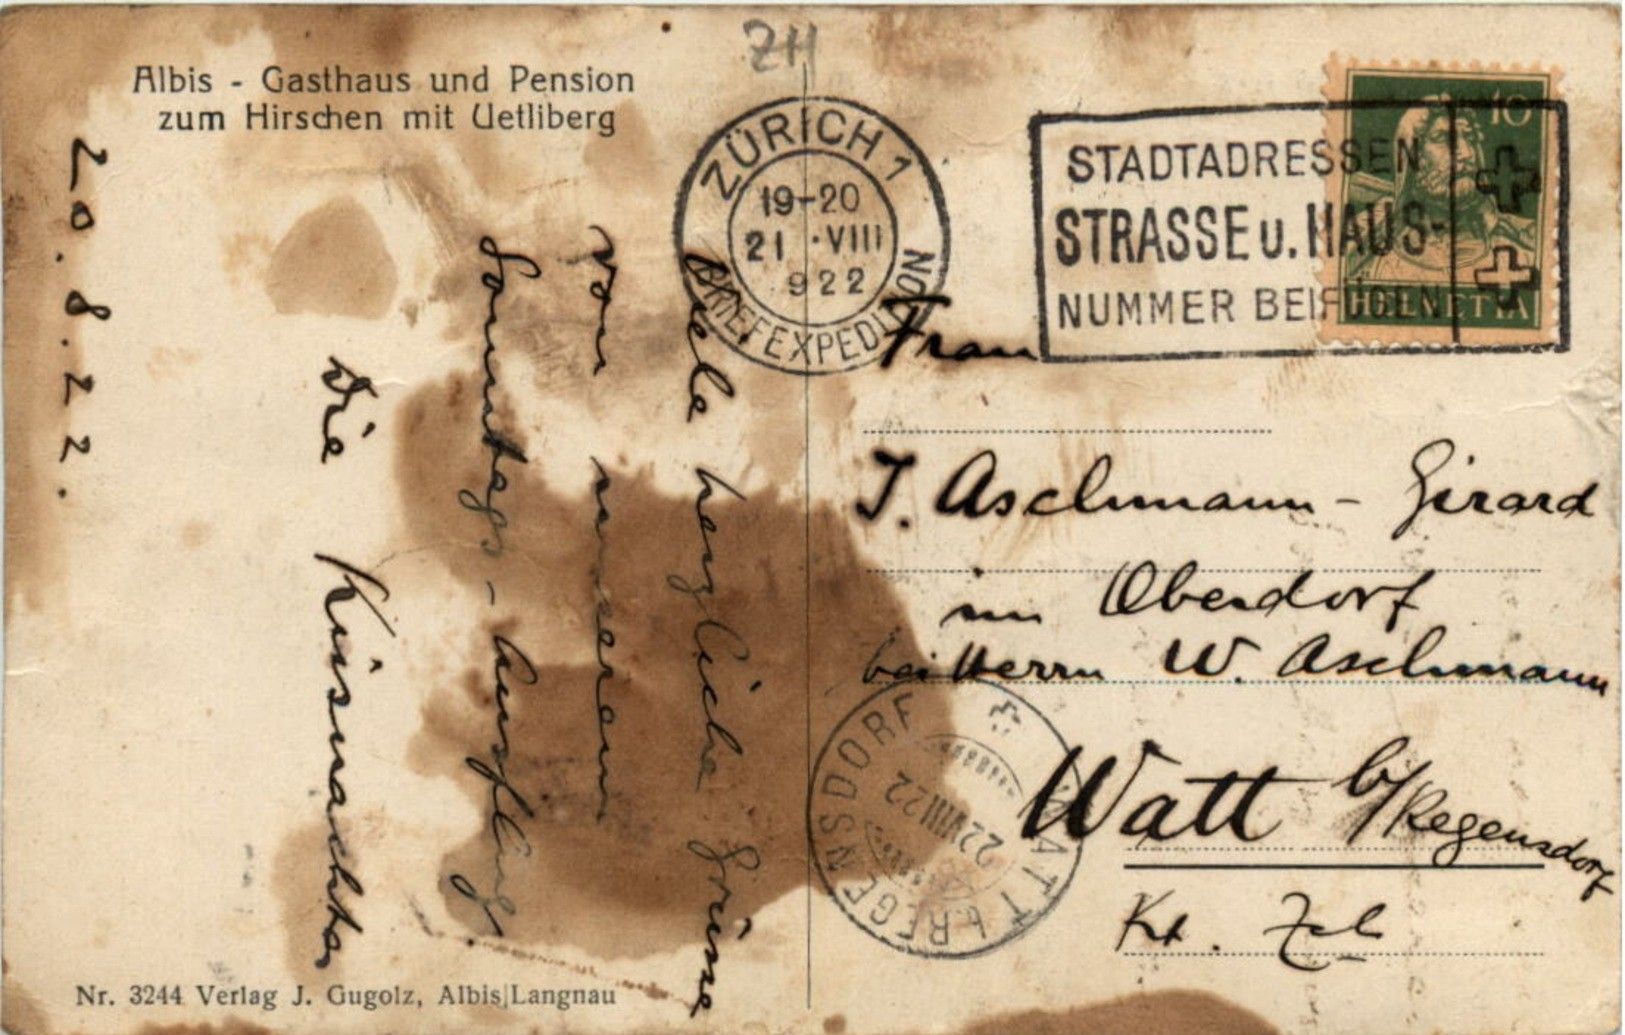 ZH
Albis - Gasthaus und Pension
zum Hirschen mit Uetliberg
20.8.22.
Viele herzliche Grüsse
von unserem
Sonntags-Ausflug
Die Küsnachter
Nr. 3244 Verlag J. Gugolz, Albis/Langnau
ZÜRICH 1
19-20
21.VIII
922
BRIEFEXPEDITION
STADTADRESSEN
STRASSE u. HAUS-
NUMMER BEIFÜGEN
10
HELVETIA
Frau
J. Aschmann-Girard
im Oberdorf
bei Herrn W. Aschmann
Watt b/Regensdorf
Kt. Zch
WATT b. REGENSDORF
22.VIII 22